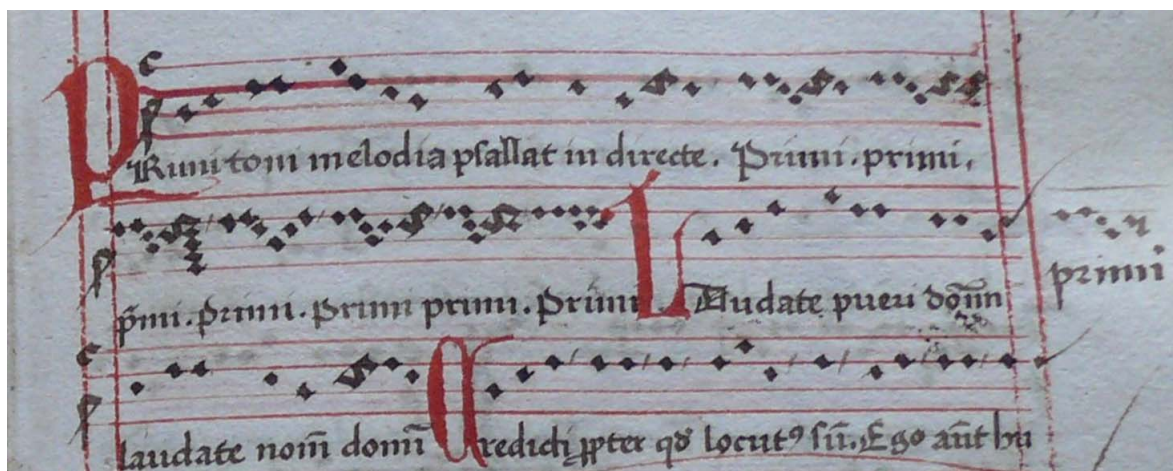 PRimi toni melodia psallat in directe. Primi. primi.
p̄mi. Primi. Primi primi. Primi LAudate pueri dom̄n
primi
laudate nom̄ domī Credidi ꝓpter qd̓ locutꝰ sū. Ego aūt hu